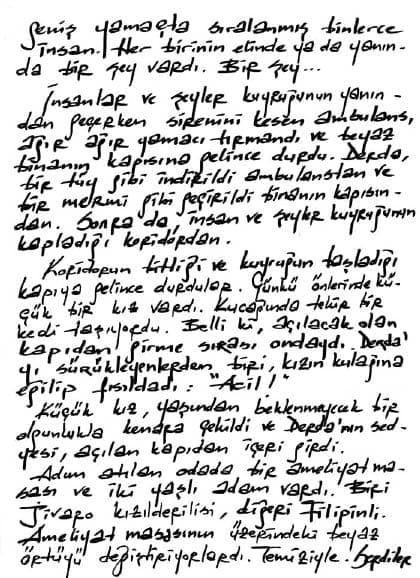 Geniş yamaçta sıralanmış binlerce
insan. Her birinin elinde ya da yanın-
da bir şey vardı. Bir şey...
İnsanlar ve şeyler kuyruğunun yanın-
dan geçerken sirenini kesen ambulans,
ağır ağır yamacı tırmandı ve beyaz
binanın kapısına gelince durdu. Derda,
bir tüy gibi indirildi ambulanstan ve
bir mermi gibi geçirildi binanın kapısın-
dan. Sonra da, insan ve şeyler kuyruğunun
kapladığı koridordan.
Koridorun bittiği ve kuyruğun başladığı
kapıya gelince durdular. Çünkü önlerinde kü-
çük bir kız vardı. Kucağında tekir bir
kedi taşıyordu. Belli ki, açılacak olan
kapıdan girme sırası ondaydı. Derda'
yı sürükleyenlerden biri, kızın kulağına
eğilip fısıldadı: "Acil!"
Küçük kız, yaşından beklenmeyecek bir
olgunlukla kenara çekildi ve Derda'nın sed-
yesi, açılan kapıdan içeri girdi.
Adım atılan odada bir ameliyat ma-
sası ve iki yaşlı adam vardı. Biri
Jivaro kızılderilisi, diğeri Filipinli.
Ameliyat masasının üzerindeki beyaz
örtüyü değiştiriyorlardı. Temiziyle. Serdiler